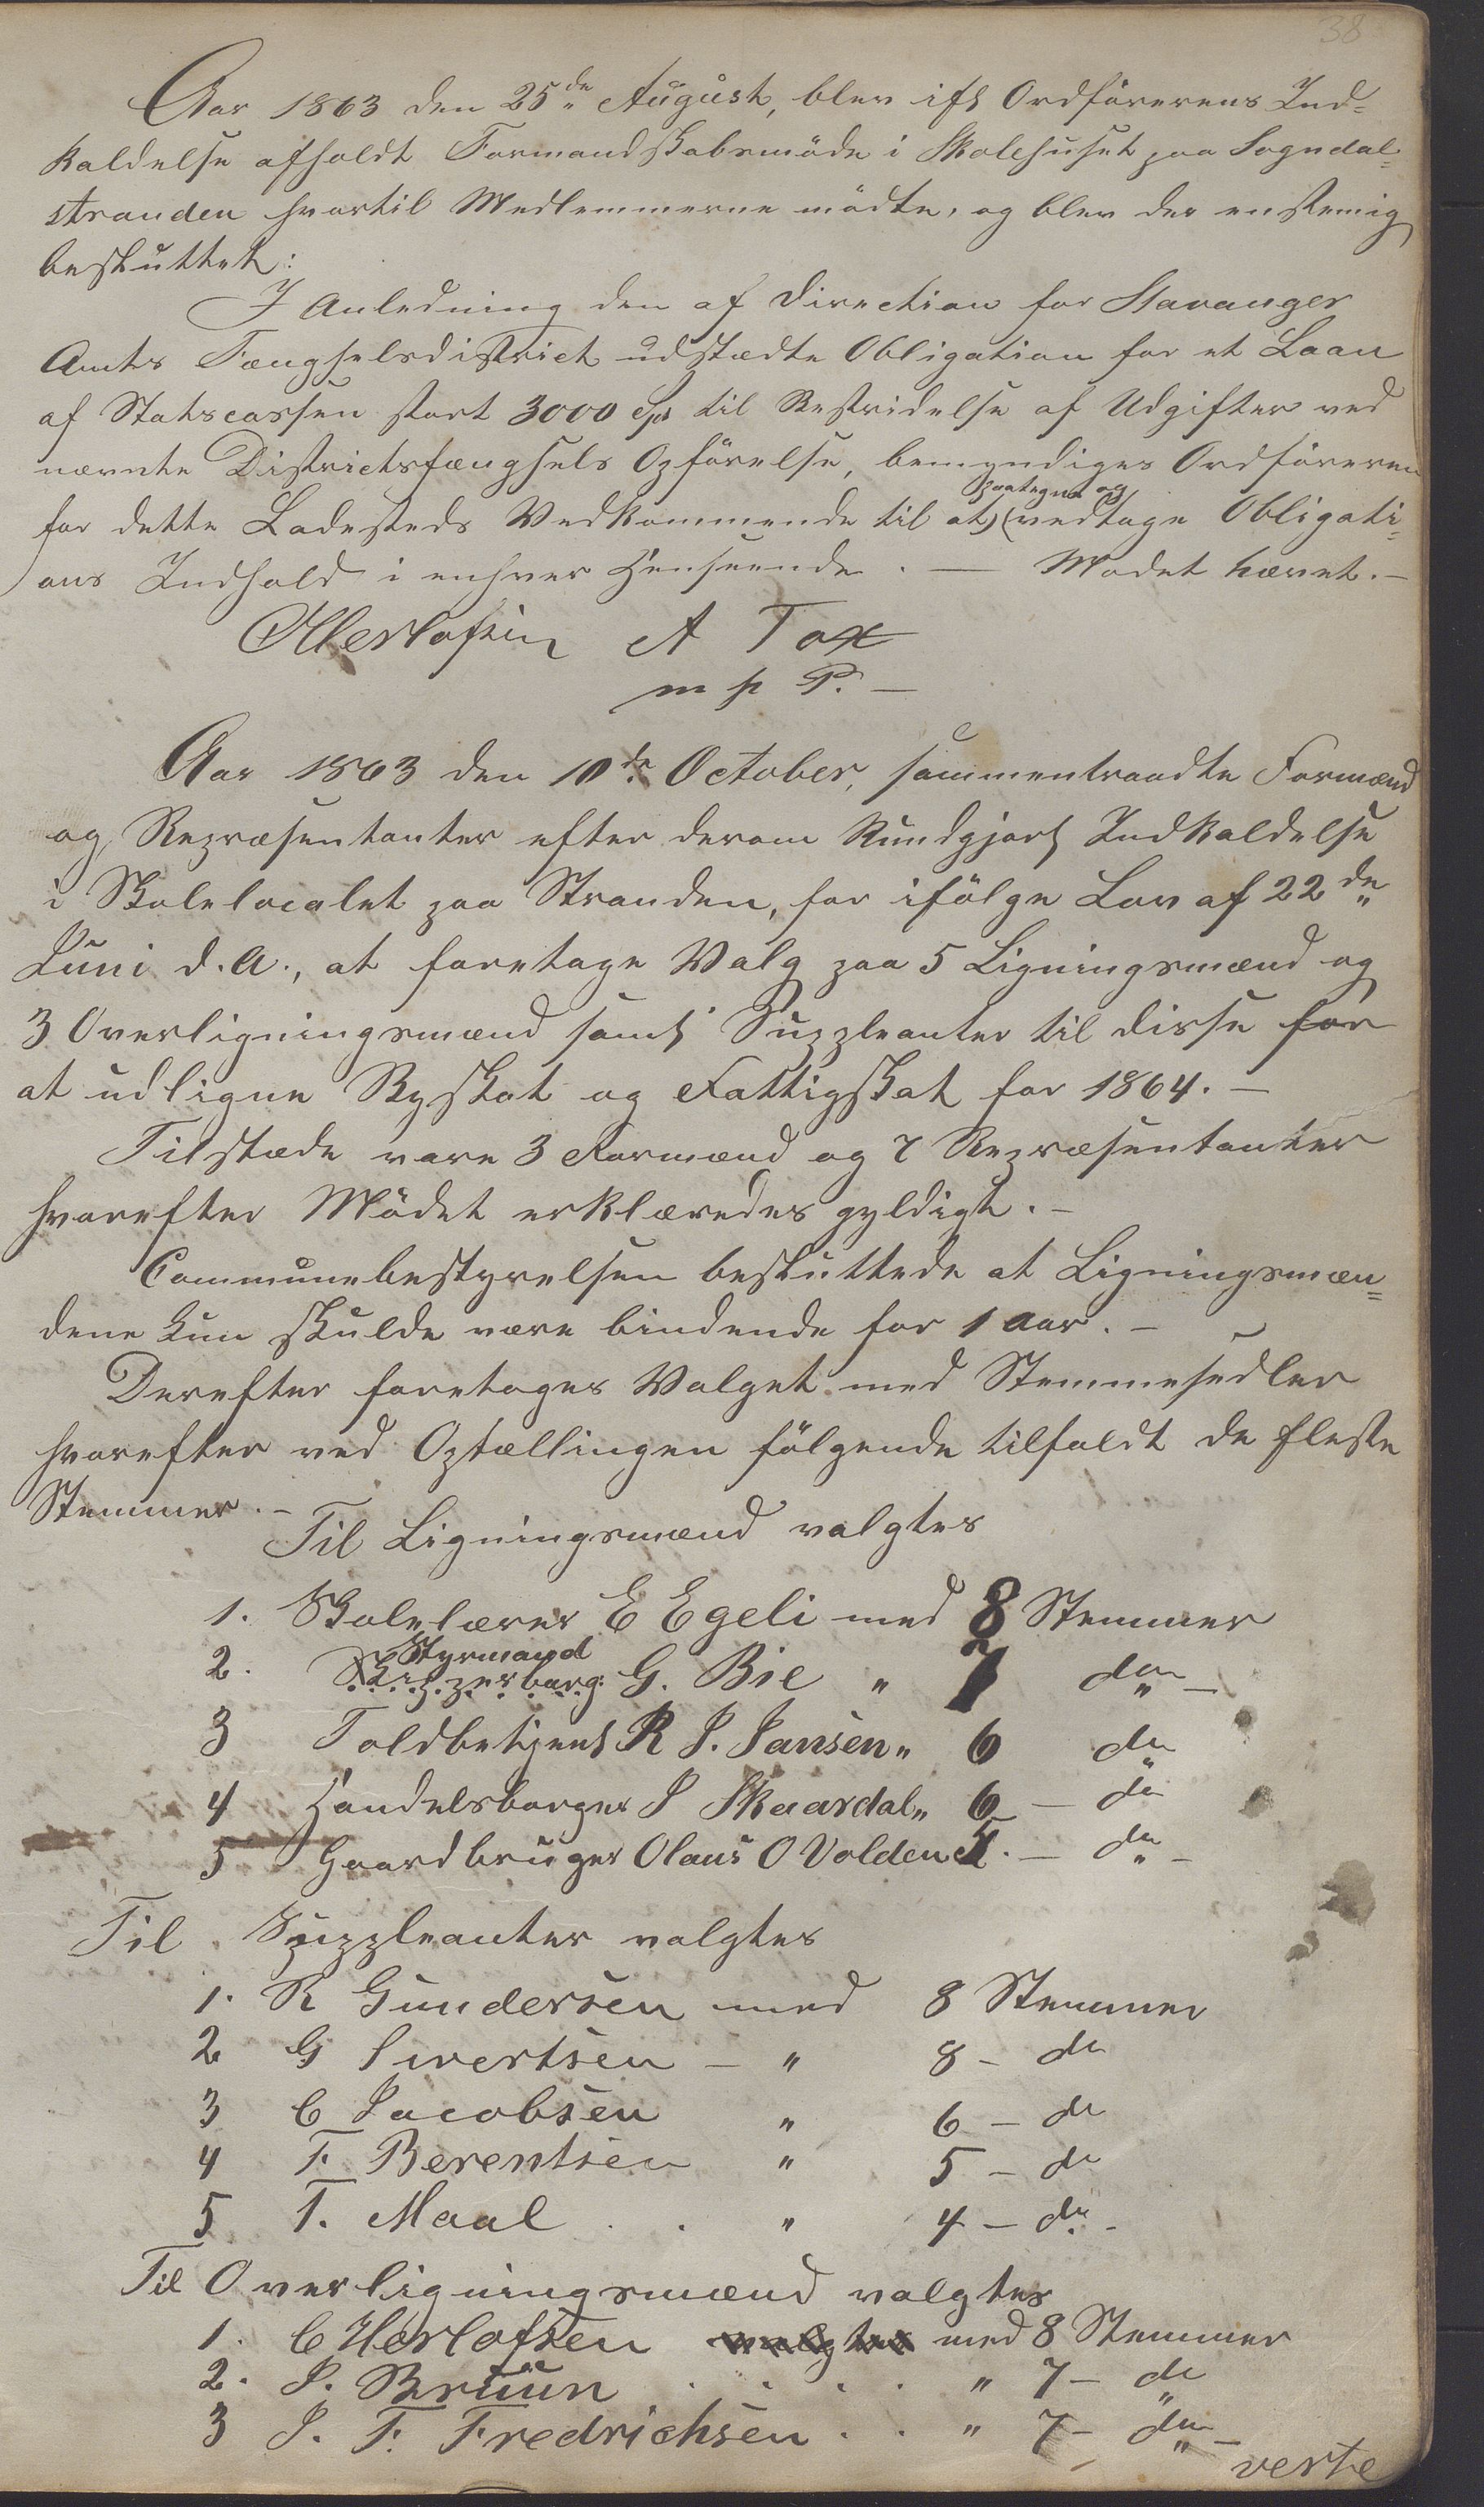 38
Aar 1863 den 25de August, blev ifl Ordförerens Ind-
kaldelse afholdt Formandskabsmöde i Skolehuset paa Sogndal-
stranden hvortil Medlemmerne mödte, og blev der enstemig
besluttet:
I Anledning den af Direction for Stavanger
Amts Fængselsdistrict udstædte Obligation for et Laan
af Statscassen stort 3000 Spd til Bestridelse af Udgifter ved
nævnte Districtsfængsels Opförelse, bemyndiges Ordföreren
paategne og
for dette Ladesteds Vedkommende til at vedtage Obligati-
ons Indhold i enhver Henseende. — Mödet hævet. —
CHerlofsen A Tox
m p P. —
Aar 1863 den 10de October, sammentraadte Formænd
og Repræsentanter efter derom kundgjort Indkaldelse
i Skolelocalet paa Stranden, for ifölge Lov af 22de
Juni d.A., at foretage Valg paa 5 Ligningsmænd og
3 Overligningsmænd samt Suppleanter til disse for
at udligne Byskat og Fattigskat for 1864. —
Tilstæde vare 3 Formænd og 7 Repræsentanter
hvorefter Mödet erklæredes gyldigt. —
Communebestyrelsen besluttede at Ligningsmæn-
dene kun skulde være bindende for 1 Aar. —
Derefter foretages Valget med Stemmesedler
hvorefter ved Optællingen fölgende tilfaldt de fleste
Stemmer. —
Til Ligningsmænd valgtes
1. Skolelærer E Egeli med 8 Stemmer
Styrmand
2. Skipperborg: G. Bie " 7 do —
3 Toldbetjent R J. Jansen " 6 do
4 Handelsborger J Skaardal " 6 — do
5 Gaardbruger Olaus O Volden 5. — do —
Til Suppleanter valgtes
1. R Gundersen med 8 Stemmer
2 G Sivertsen — " 8 — do
3 C Jacobsen " 6 — do
4 F. Berentsen " 5 — do
5 T. Maal . . " 4 — do —
Til Overligningsmænd valgtes
1. C Herlofsen valgtes med 8 Stemmer
2. J. Bruun . . . . " 7 — do
3 J. F. Fredrichsen . . " 7 — do —
verte